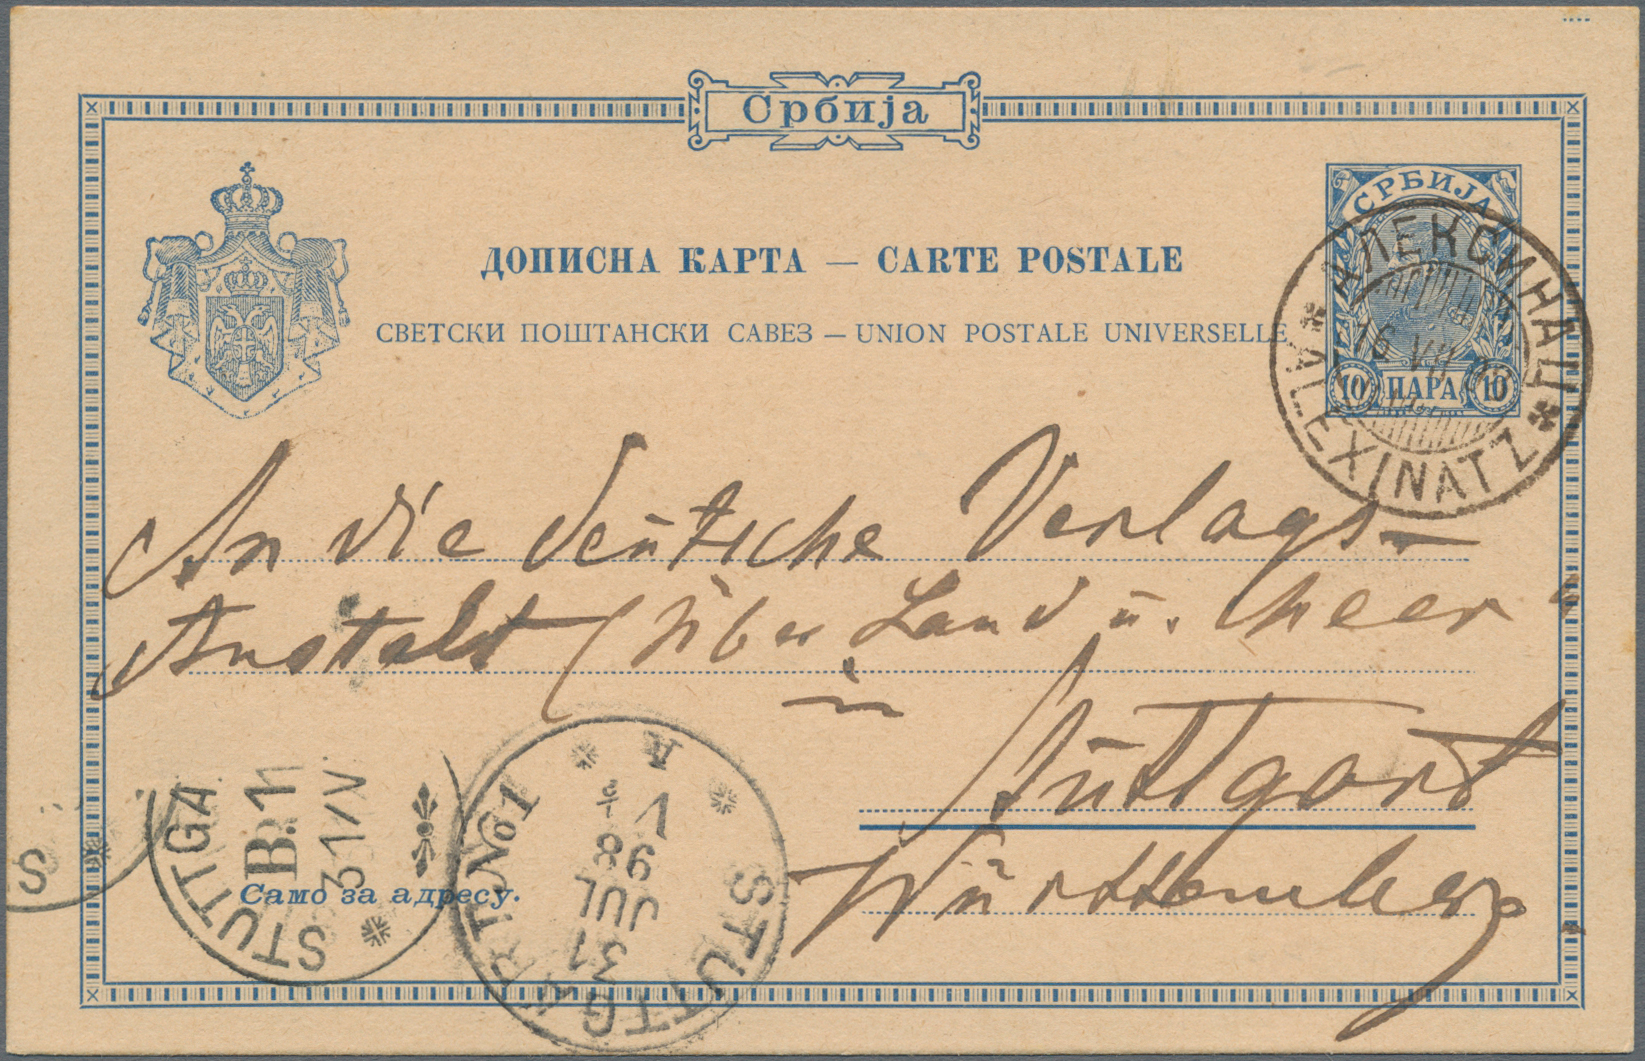 Србија
СРБИЈА
ДОПИСНА КАРТА — CARTE POSTALE
СВЕТСКИ ПОШТАНСКИ САВЕЗ — UNION POSTALE UNIVERSELLE
10 ПАРА 10
АЛЕКСИНАЦ
16 VII
ALEXINATZ
An die deutsche Verlags-
Anstalt (Über Land u. Meer"
in
Stuttgart
Württemberg
Само за адресу.
STUTTGA
B. 11
31/V
STUTTGART No1
31
JUL
98
S